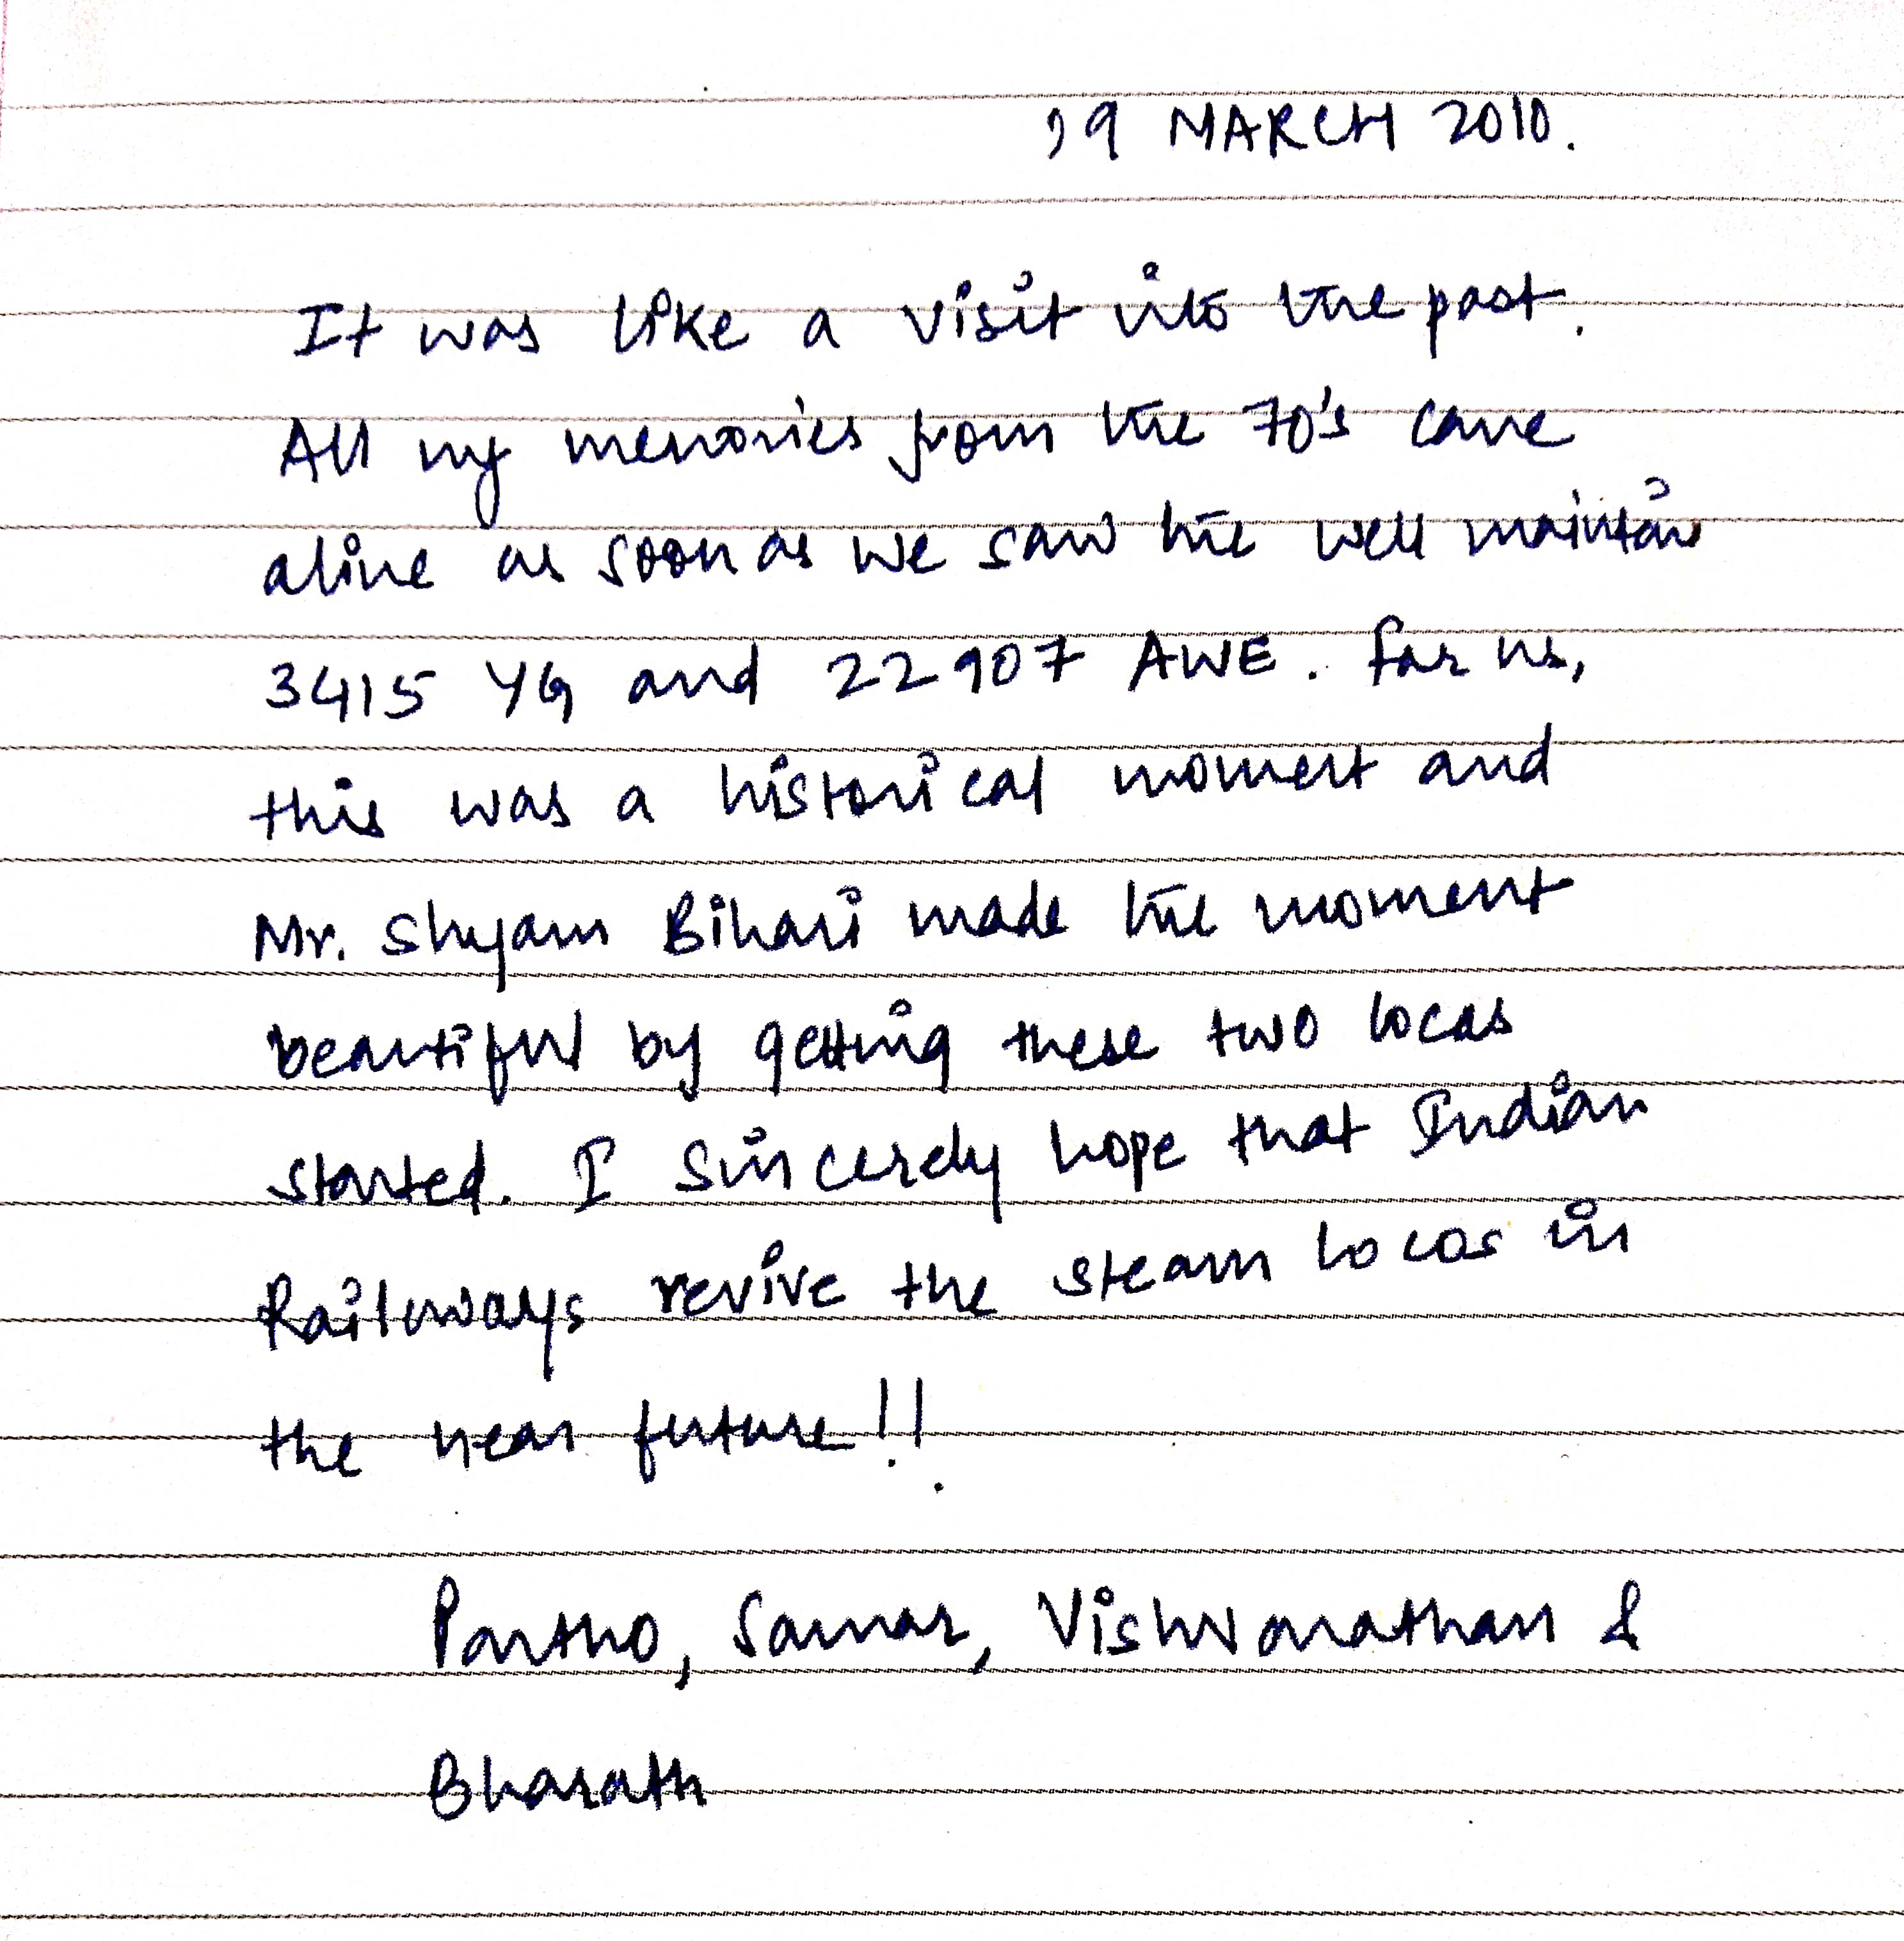 19 MARCH 2010.
It was like a visit into the past.
All my memories from the 70's came
alive as soon as we saw the well maintain
3415 YG and 22907 AWE. For us,
this was a historical moment and
Mr. Shyam Bihari made the moment
beautiful by getting these two locos
started. I sincerely hope that Indian
Railways revive the steam locos in
the near future!!
Partho, Samar, Vishwanathan &
Bharath